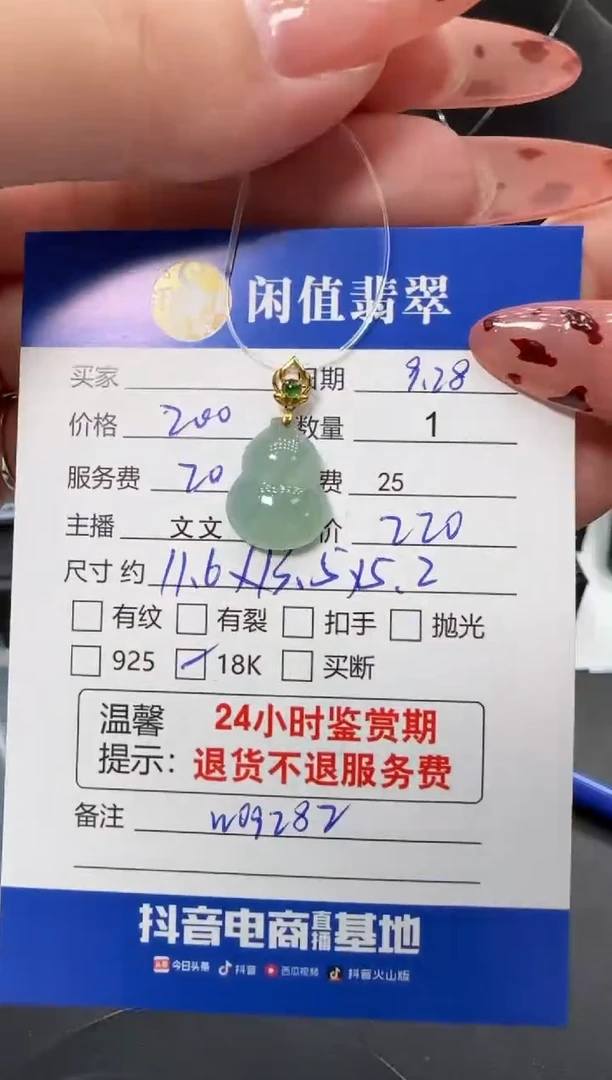 闲值翡翠
买家 日期 9.28
价格 200 数量 1
服务费 20 费 25
主播 文文 价 220
尺寸 约 11.6x15.5x5.2
有纹 有裂 扣手 抛光
925 18K 买断
温馨 24小时鉴赏期
提示: 退货不退服务费
备注 W09282
抖音电商直播基地
头条 今日头条 抖音 西瓜视频 抖音火山版